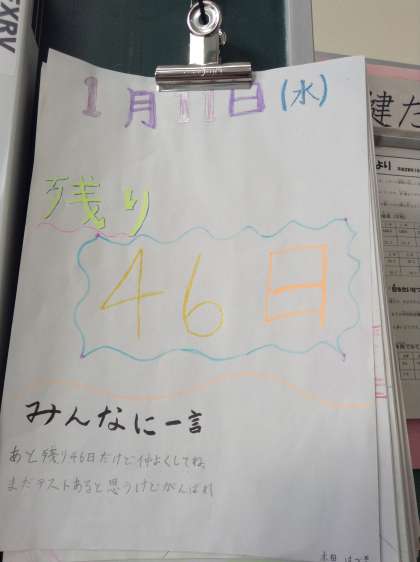 1月11日(水)
残り
46日
みんなに一言
あと残り46日だけど仲よくしてね
まだテストあると思うけどがんばれ
EXRY
健た
より